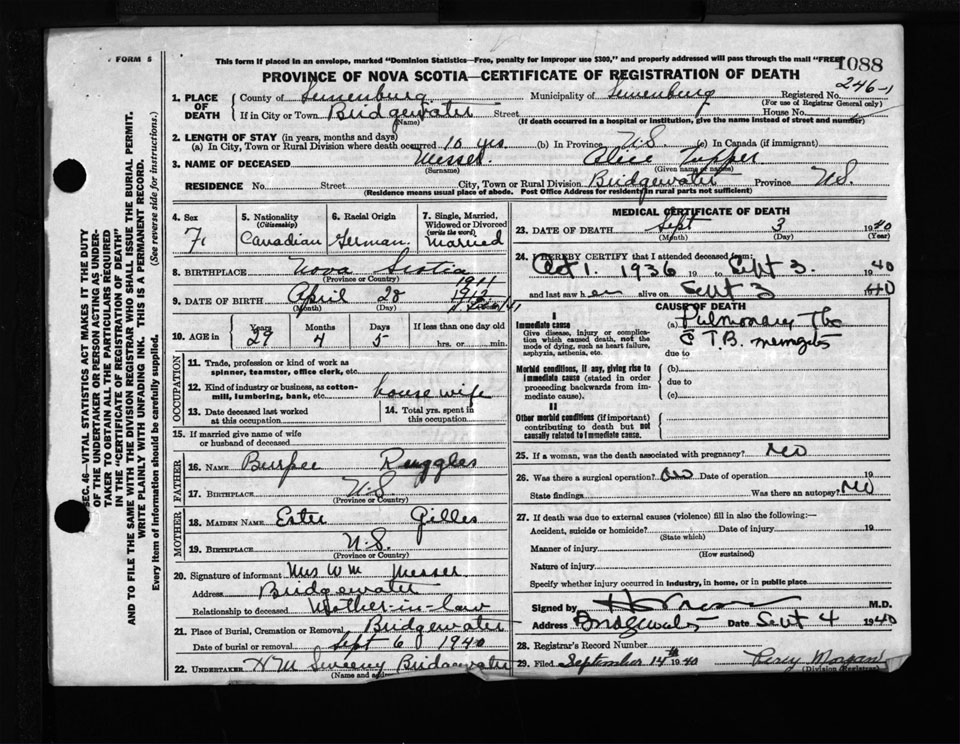 FORM 6
This form if placed in an envelope, marked "Dominion Statistics—Free, penalty for improper use $300," and properly addressed will pass through the mail "FREE"
1088
PROVINCE OF NOVA SCOTIA—CERTIFICATE OF REGISTRATION OF DEATH
246-1
1. PLACE OF DEATH
County of Lunenburg Municipality of Lunenburg Registered No.
(For use of Registrar General only)
If in City or Town Bridgewater Street House No.
(Name) (If death occurred in a hospital or institution, give the name instead of street and number)
2. LENGTH OF STAY (in years, months and days)
(a) In City, Town or Rural Division where death occurred 10 yrs. (b) In Province N.S. (c) In Canada (if immigrant)
3. NAME OF DECEASED Messer Alice Tupper
(Surname) (Given name or names)
RESIDENCE No. Street City, Town or Rural Division Bridgewater Province N.S.
(Residence means usual place of abode. Post Office Address for residents in rural parts not sufficient)
4. Sex
F.
5. Nationality
(Citizenship)
Canadian
6. Racial Origin
German
7. Single, Married, Widowed or Divorced
(write the word)
Married
8. BIRTHPLACE Nova Scotia
(Province or Country)
1911
9. DATE OF BIRTH April 28 1912
(Month) (Day)
10. AGE in
Years Months Days If less than one day old
29 4 5 hrs. or min.
OCCUPATION
11. Trade, profession or kind of work as spinner, teamster, office clerk, etc.
12. Kind of industry or business, as cotton-mill, lumbering, bank, etc. housewife
13. Date deceased last worked at this occupation
14. Total yrs. spent in this occupation
15. If married give name of wife or husband of deceased
FATHER
16. NAME Burpee Ruggles
17. BIRTHPLACE N.S.
(Province or Country)
MOTHER
18. MAIDEN NAME Ester Gilles
19. BIRTHPLACE N.S.
(Province or Country)
20. Signature of informant Mrs Wm Messer
Address Bridgewater
Relationship to deceased Mother-in-law
21. Place of Burial, Cremation or Removal Bridgewater
Date of burial or removal Sept 6 1940
22. UNDERTAKER HM Sweeny Bridgewater
(Name and
MEDICAL CERTIFICATE OF DEATH
23. DATE OF DEATH Sept 3 1940
(Month) (Day) (Year)
24. I HEREBY CERTIFY that I attended deceased from:
Oct 1. 1936 19 to Sept 3. 40
and last saw her alive on Sept 3 40
CAUSE OF DEATH
I
Immediate cause
Give disease, injury or complication which caused death, not the mode of dying, such as heart failure, asphyxia, asthenia, etc.
(a) Pulmonary Tbc
T.B.
due to
Morbid conditions, if any, giving rise to immediate cause (stated in order proceeding backwards from immediate cause).
(b)
due to
(c)
II
Other morbid conditions (if important) contributing to death but not causally related to immediate cause.
25. If a woman, was the death associated with pregnancy? no
26. Was there a surgical operation? no Date of operation 19
State findings Was there an autopsy? no
27. If death was due to external causes (violence) fill in also the following:—
Accident, suicide or homicide? Date of injury 19
(State which)
Manner of injury
(How sustained)
Nature of injury
Specify whether injury occurred in industry, in home, or in public place
Signed by M.D.
Address Bridgewater Date Sept 4 1940
28. Registrar's Record Number
29. Filed September 14th 1940 Percy Morgan
(Division Registrar)
SEC. 46—VITAL STATISTICS ACT MAKES IT THE DUTY
OF THE UNDERTAKER OR PERSON ACTING AS UNDER-
TAKER TO OBTAIN ALL THE PARTICULARS REQUIRED
IN THE "CERTIFICATE OF REGISTRATION OF DEATH"
AND TO FILE THE SAME WITH THE DIVISION REGISTRAR WHO SHALL ISSUE THE BURIAL PERMIT.
WRITE PLAINLY WITH UNFADING INK. THIS IS A PERMANENT RECORD.
Every item of information should be carefully supplied. (See reverse side for instructions.)